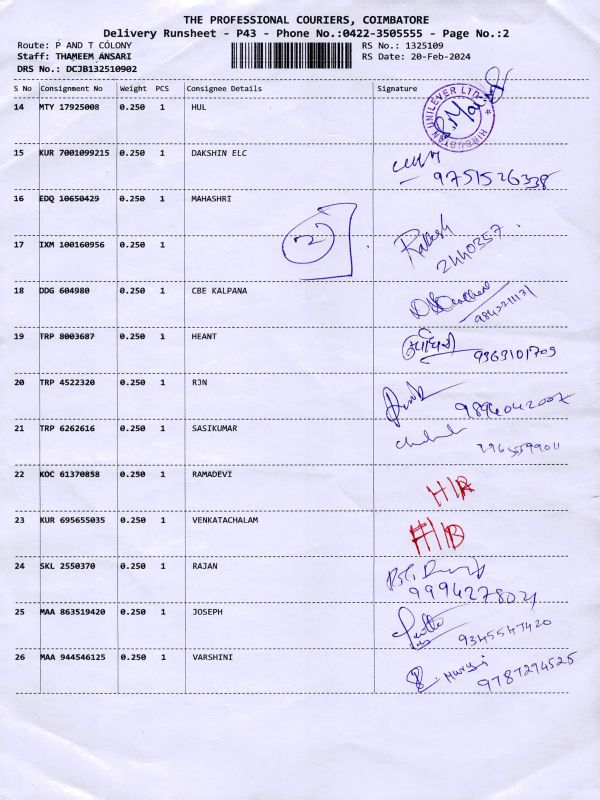 THE PROFESSIONAL COURIERS, COIMBATORE
Delivery Runsheet - P43 - Phone No.:0422-3505555 - Page No.:2
Route: P AND T COLONY RS No.: 1325109
Staff: THAMEEM ANSARI RS Date: 20-Feb-2024
DRS No.: DCJB132510902
S No Consignment No Weight PCS Consignee Details Signature
14 MTY 17925008 0.250 1 HUL
HINDUSTAN UNILEVER LTD
15 KUR 7001099215 0.250 1 DAKSHIN ELC
9751526338
16 EDQ 10650429 0.250 1 MAHASHRI
2
Rakesh
17 IXM 100160956 0.250 1
2440357
18 DDG 604980 0.250 1 CBE KALPANA
19 TRP 8003687 0.250 1 HEANT
9363101709
20 TRP 4522320 0.250 1 RJN
9894042007
21 TRP 6262616 0.250 1 SASIKUMAR
22 KOC 61370858 0.250 1 RAMADEVI
23 KUR 695655035 0.250 1 VENKATACHALAM
24 SKL 2550370 0.250 1 RAJAN
9994278021
25 MAA 863519420 0.250 1 JOSEPH
9345547420
26 MAA 944546125 0.250 1 VARSHINI
9787294525